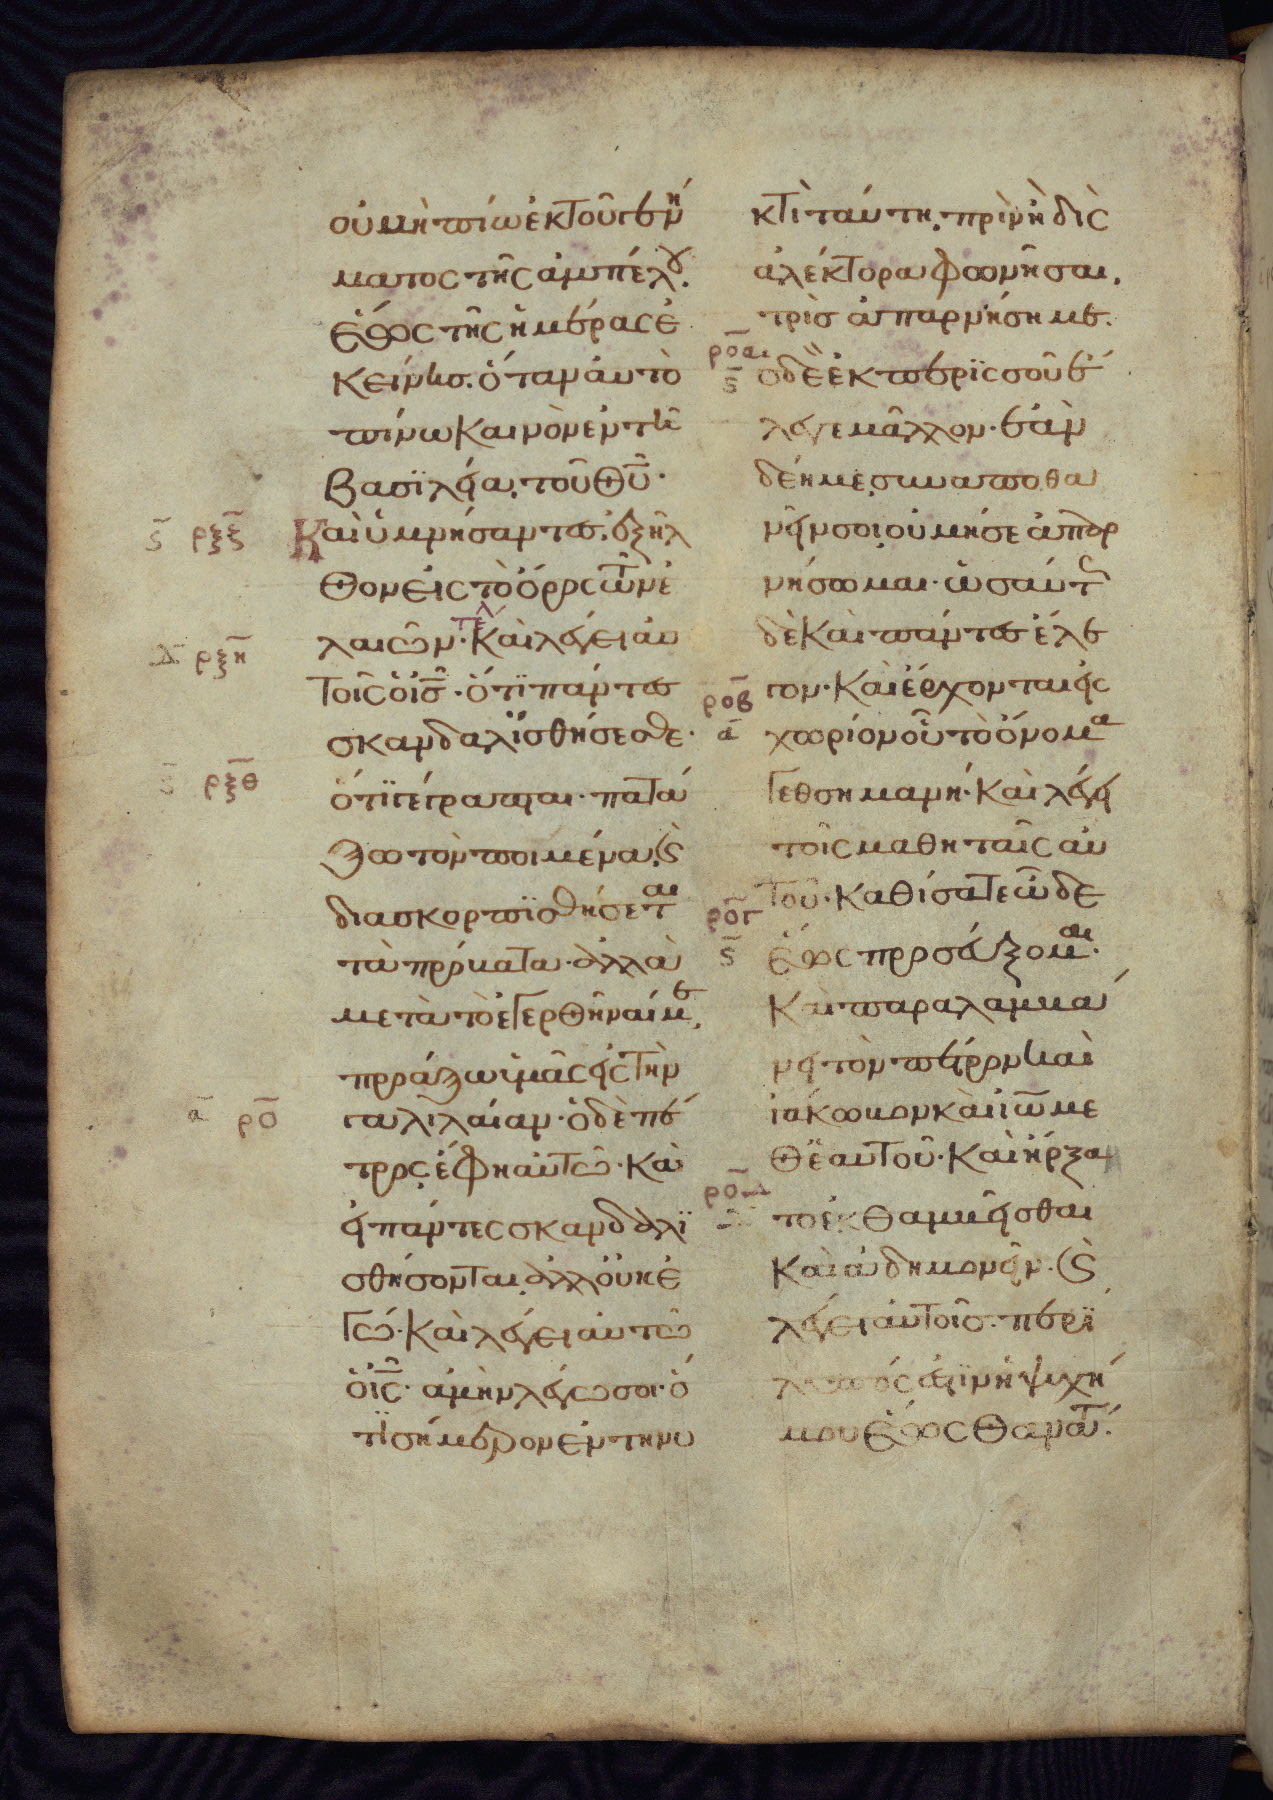 οὐ μὴ πίω ἐκ τοῦ γεννή
ματος τῆς ἀμπέλου.
ἕως τῆς ἡμέρας ἐ
κείνης. ὅταν αὐτὸ
πίνω καινὸν ἐν τῆ
βασϊλεία, τοῦ θῦ.
ϛ ρξζ Καὶ ὑμνήσαντες. ἐξῆλ
θον εἰς τὸ ὄρος τῶν ἐ
τελ
δ ρξη λαιῶν. Καὶ λέγει αὐ
τοῖς ὁ ἰς̅. ὅτϊ πάντες
σκανδαλϊσθήσεσθε.
ϛ ρξθ ὅτϊ γέγραπται. πατά
ξω τὸν ποιμένα, καὶ
διασκορπϊσθήσεται
τὰ πρόβατα. ἀλλὰ
μετὰ τὸ ἐγερθῆναί με,
προάξω ὑμᾶς εἰς τὴν
α ρο γαλιλαίαν. ὁ δὲ πέ
τρος, ἔφη αὐτῶ. Καὶ
εἰ πάντες σκανδαλϊ
σθήσονται, ἀλλ' οὐκ ἐ
γώ. Καὶ λέγει αὐτῶ
ὁ ἰς̅. ἀμὴν λέγω σοι. ὅ
τϊ σήμερον ἐν τη νυ
κτὶ ταύτη. πρὶν ἢ δὶς
ἀλέκτορα φωνῆσαι,
τρὶς ἀπαρνήση με.
ροα
ϛ ὁ δὲ ἐκ περϊσσοῦ ἔ
λεγε μᾶλλον. ἐὰν
δέη με, συναποθα
νεῖν σοι, οὐ μή σε ἀπαρ
νήσωμαι. ὡσαύτως
δὲ καὶ πάντες ἔλε
ροβ γον. Καὶ ἔρχονται εἰς
α χωρίον οὗ τὸ ὄνομα
Γεθσημανή. Καὶ λέγει
τοῖς μαθηταῖς αὐ
τοῦ. Καθίσατε ὧδε
ρογ
ϛ ἕως προσεύξομαι.
Καὶ παραλαμβά
νει τὸν πέτρον καὶ
ἰάκωβον καὶ ἰω̅ με
θ' ἑαυτοῦ. Καὶ ἤρξα
ροδ
το ἐκθαμβεῖσθαι
Καὶ ἀδημονεῖν. καὶ
λέγει αὐτοῖς. περί
λυπός ἐστϊν ἡ ψυχή
μου ἕως θανάτου.